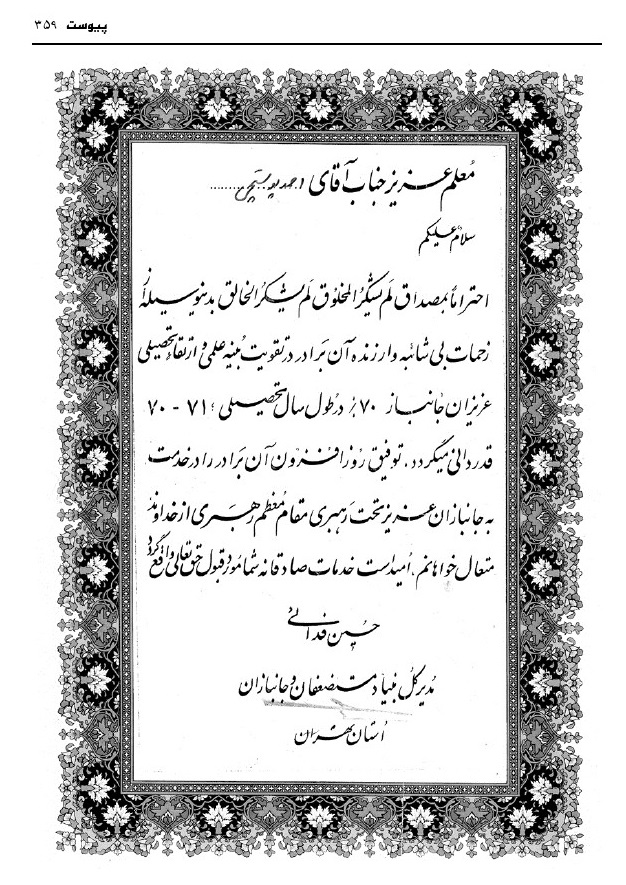 پیوست ۳۵۹
معلم عزیز جناب آقای احمد
سلام علیکم
احتراماً بمصداق لَم یشکُرُ المخلوُق لَم یشکُر الخالق بدینوسیله از
زحمات بی شائبه و ارزنده آن برادر در تقویت بُنیه علمی و ارتقاء تحصیلی
عزیزان جانباز ۷۰٪ در طول سال تحصیلی ۷۱ - ۷۰
قدردانی میگردد، توفیق روزافزون آن برادر را در خدمت
به جانبازان عزیز تحت رهبری مقام معظم رهبری از خداوند
متعال خواهانم، امید است خدمات صادقانه شما مورد قبول حق تعالی واقع گردد
حسین فدائی
مُدیر کُل بُنیاد مستضعفان و جانبازان
اُستان تهران